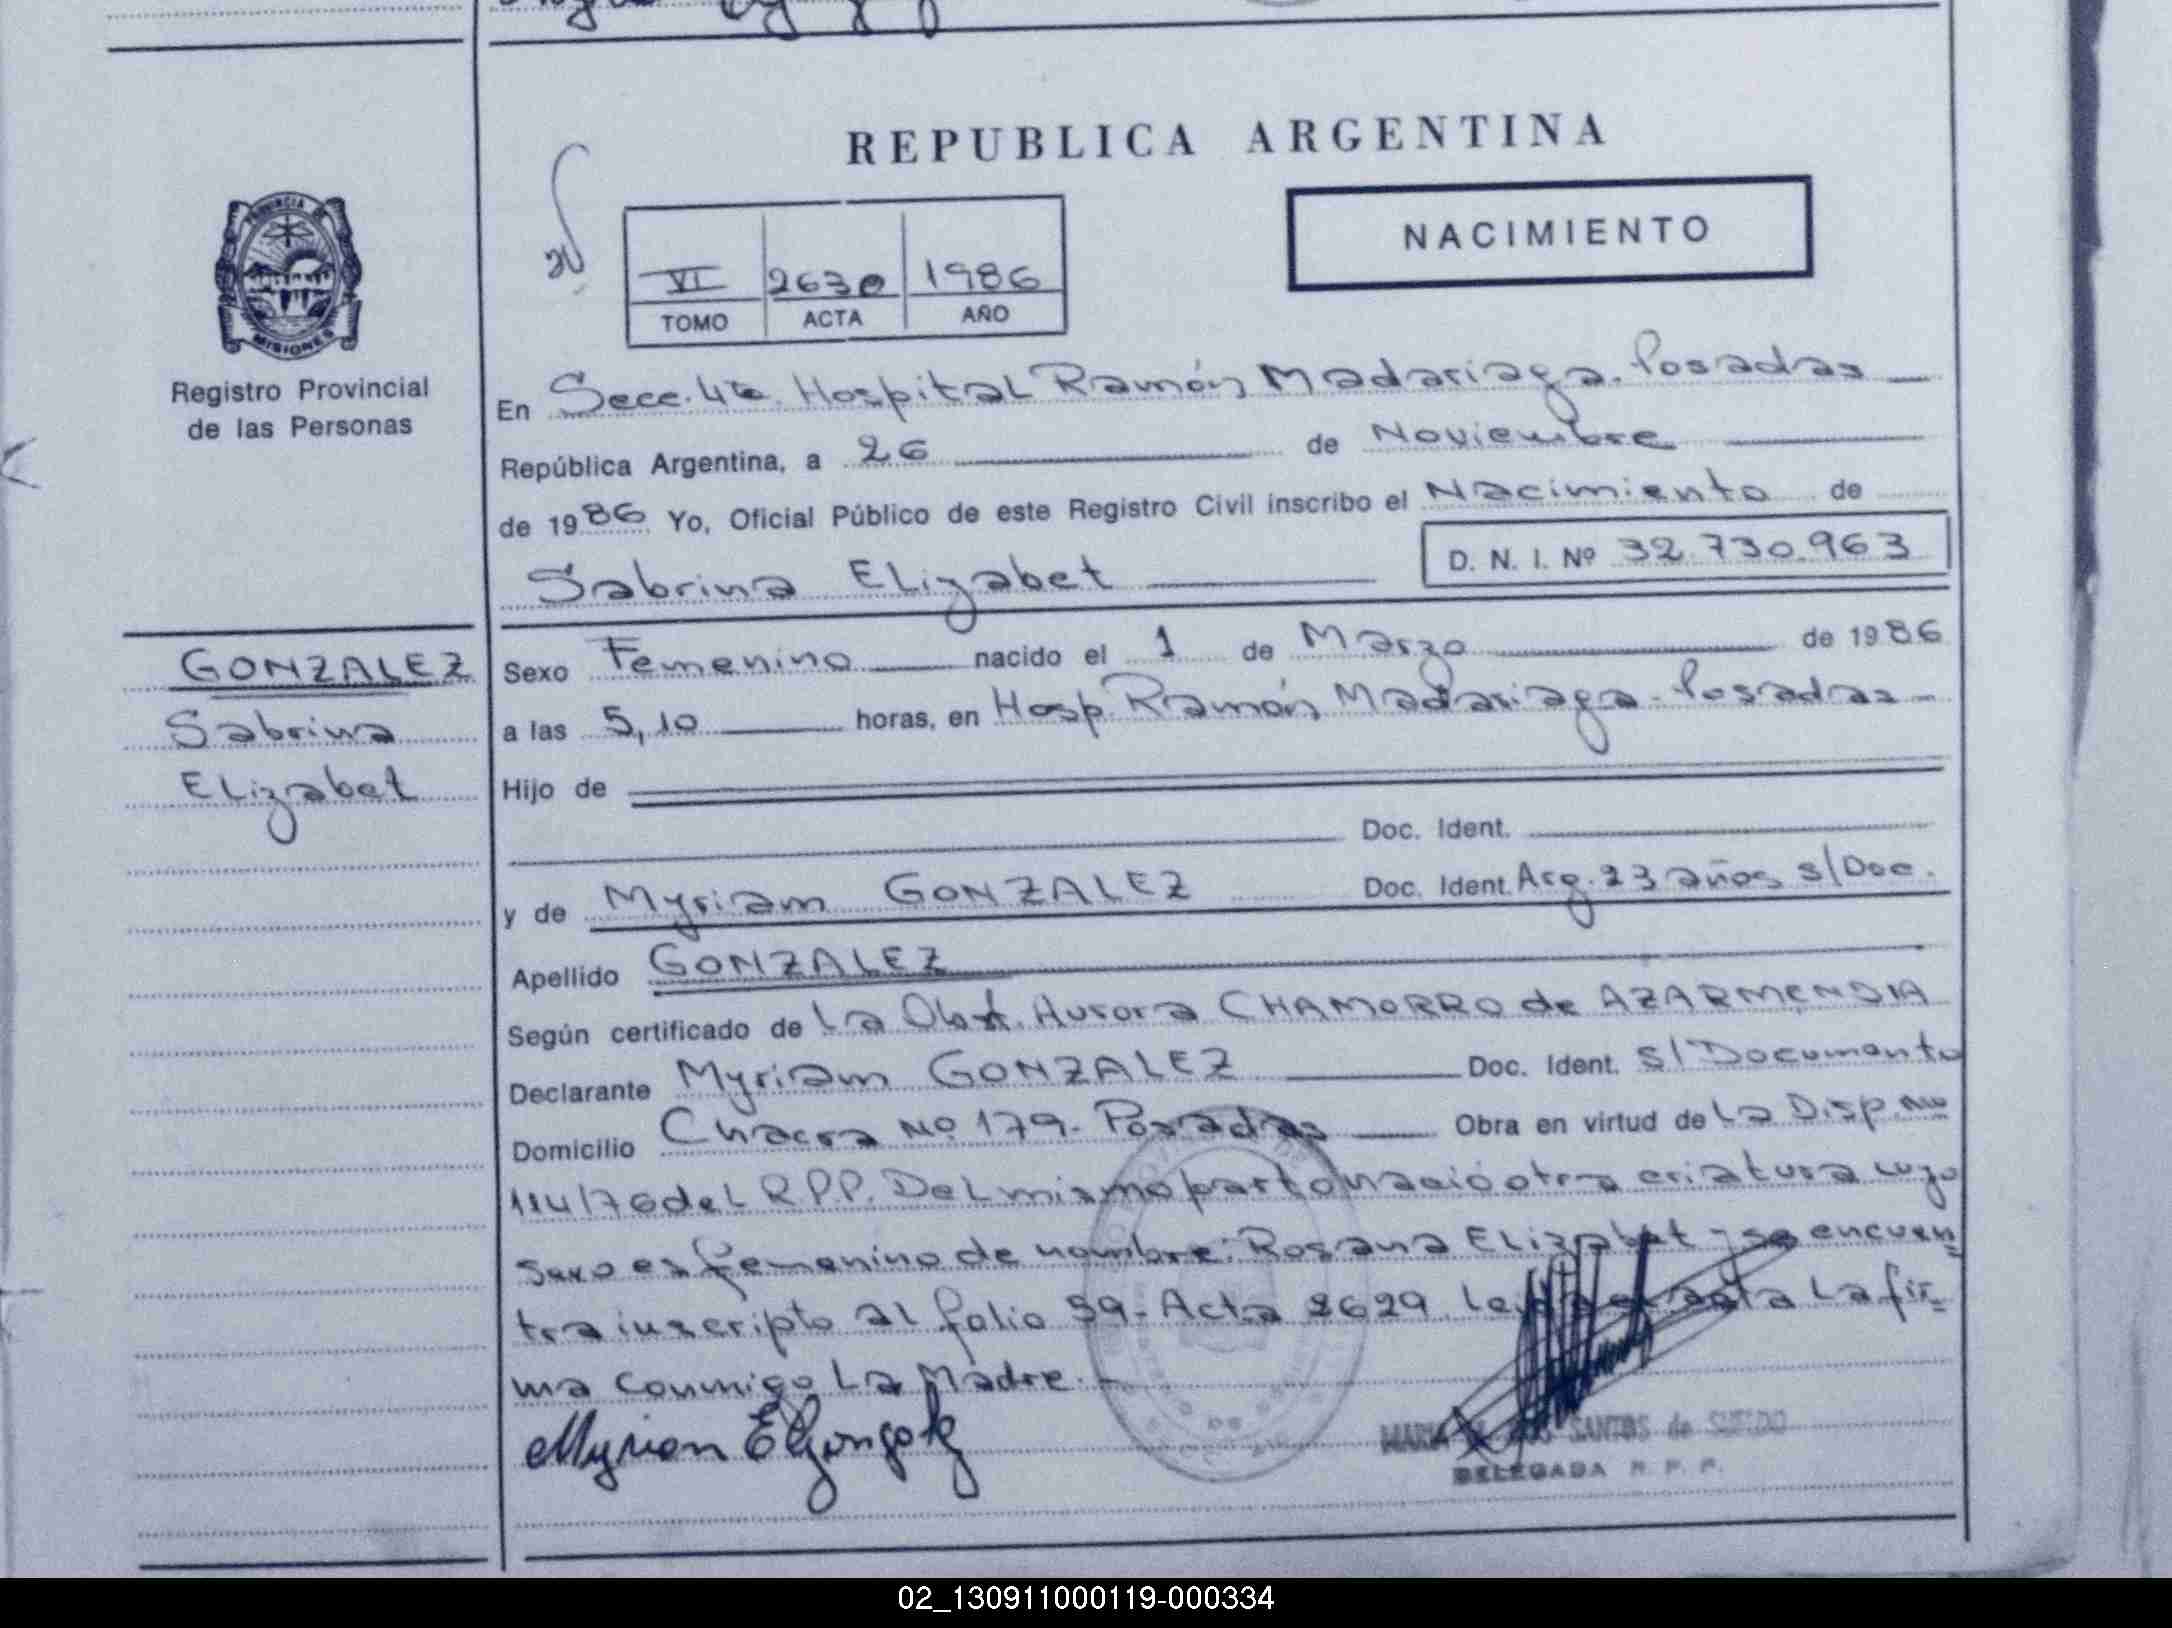 REPUBLICA ARGENTINA
NACIMIENTO
VI 2630 1986
TOMO ACTA AÑO
PROVINCIA DE
MISIONES
Registro Provincial
de las Personas
En Secc. 4ta. Hospital Ramón Madariaga. Posadas
República Argentina, a 26 de Noviembre
de 1986 Yo, Oficial Público de este Registro Civil inscribo el Nacimiento de
D. N. I. Nº 32.730.963
Sabrina Elizabet
GONZALEZ
Sabrina
Elizabet
Sexo Femenino nacido el 1 de Marzo de 1986
a las 5,10 horas, en Hosp. Ramón Madariaga - Posadas -
Hijo de
Doc. Ident.
y de Myriam GONZALEZ Doc. Ident. Arg. 23 años s/Doc.
Apellido GONZALEZ
Según certificado de La Obst. Aurora CHAMORRO de AZARMENDIA
Declarante Myriam GONZALEZ Doc. Ident. S/Documento
Domicilio Chacra Nº 179. Posadas Obra en virtud de La Disp. Nº
114/76 del R.P.P. Del mismo parto nació otra criatura cuyo
sexo es femenino de nombre: Rosana Elizabet - se encuen
tra inscripto al folio 39 - Acta 2629. Leída acta La fir
ma conmigo La Madre. -
Myrian E Gonzalez
MARIA SANTOS de
DELEGADA R. P. P.
02_130911000119-000334